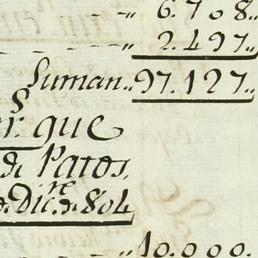 „ 6.708„
„ 2.497„
Suman„ 97.127„
que
de Patos,
re
de Dic. de 804
„ 10.000.